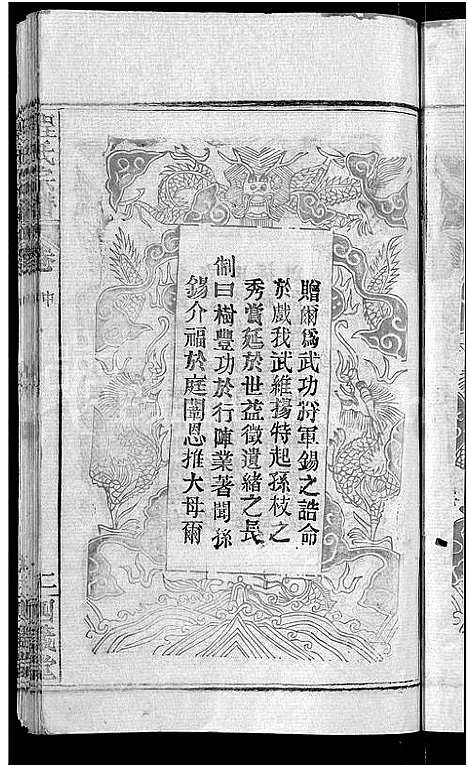 贈爾為武功將軍錫之誥命
於戲我武維揚特起孫枝之
秀賞延於世益徵遺緒之長
制曰樹豐功於行陣業著聞孫
錫介福於庭闈恩推大母爾
程氏宗譜
卷
中
二
四箴堂